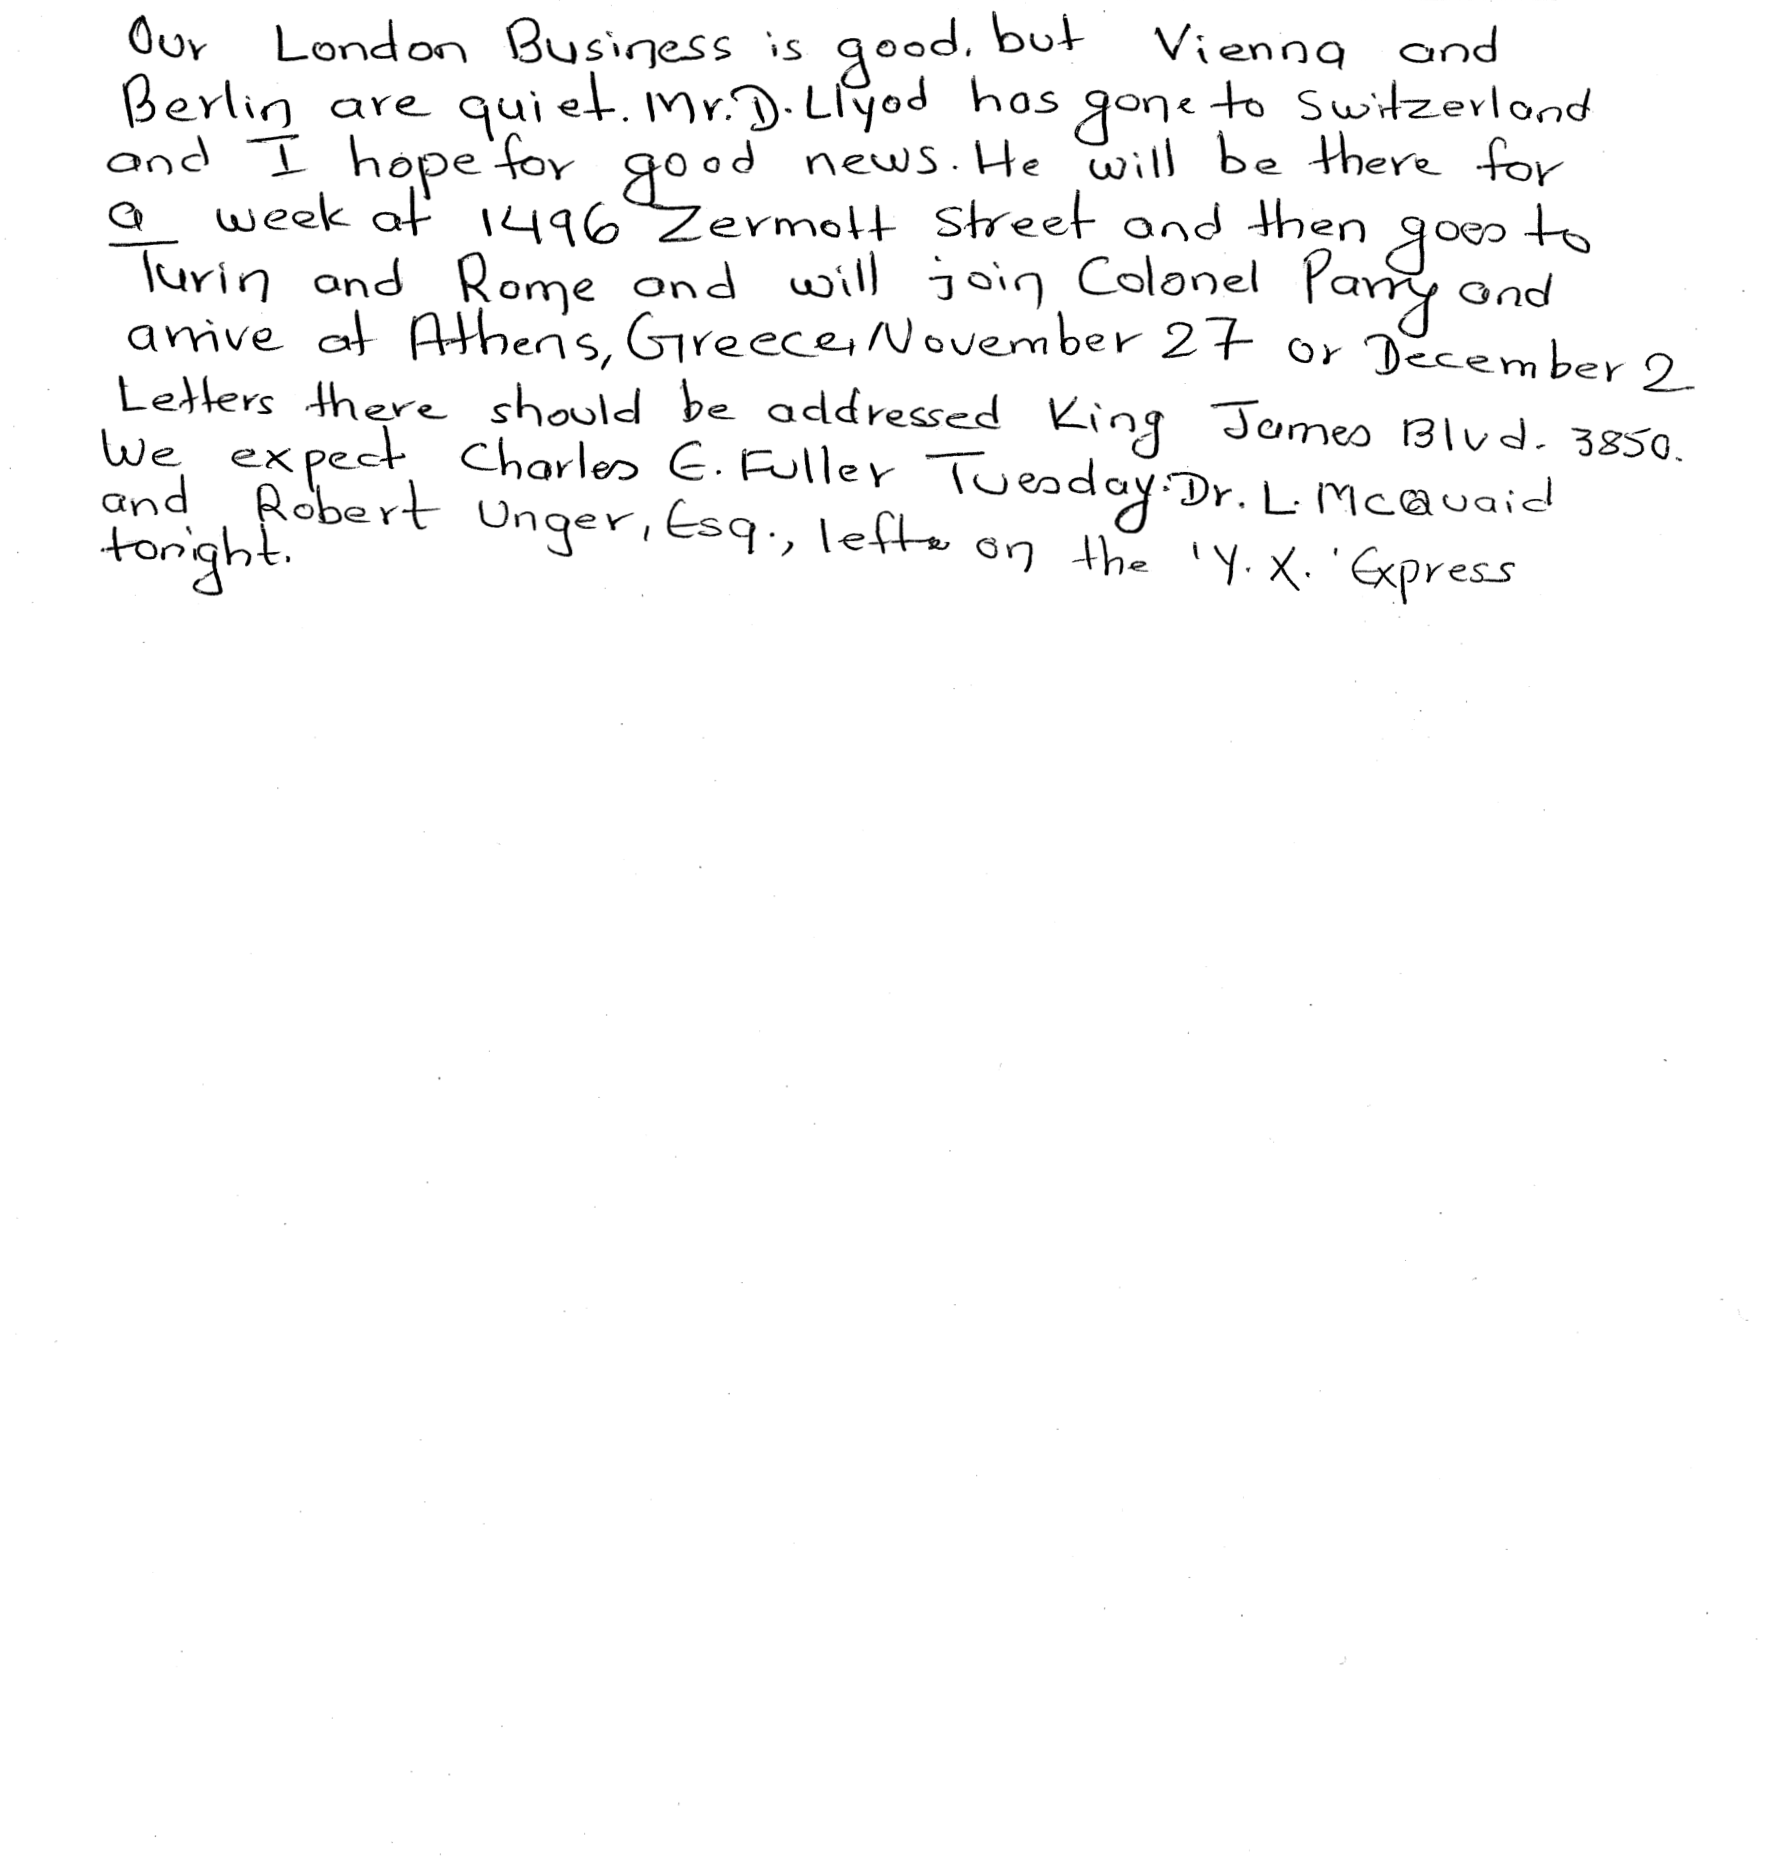 Our London Business is good, but Vienna and
Berlin are quiet. Mr. D. Llyod has gone to Switzerland
and I hope for good news. He will be there for
a week at 1496 Zermott Street and then goes to
Turin and Rome and will join Colonel Parry and
arrive at Athens, Greece, November 27 or December 2
Letters there should be addressed King James Blvd. 3850.
We expect Charles E. Fuller Tuesday. Dr. L. McQuaid
and Robert Unger, Esq., left on the 'Y. X.' Express
tonight.